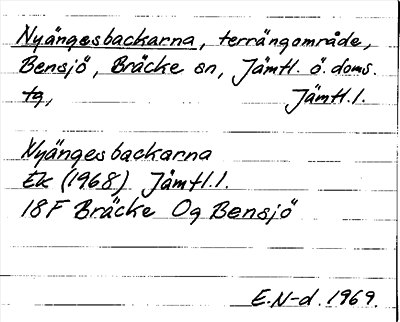 Nyängesbackarna, terrängområde,
Bensjö, Bräcke sn, Jämtl. ö. doms.
tg, Jämtl. l.
Nyängesbackarna
Ek (1968) Jämtl. l.
18F Bräcke Og Bensjö
E.N-d. 1969.